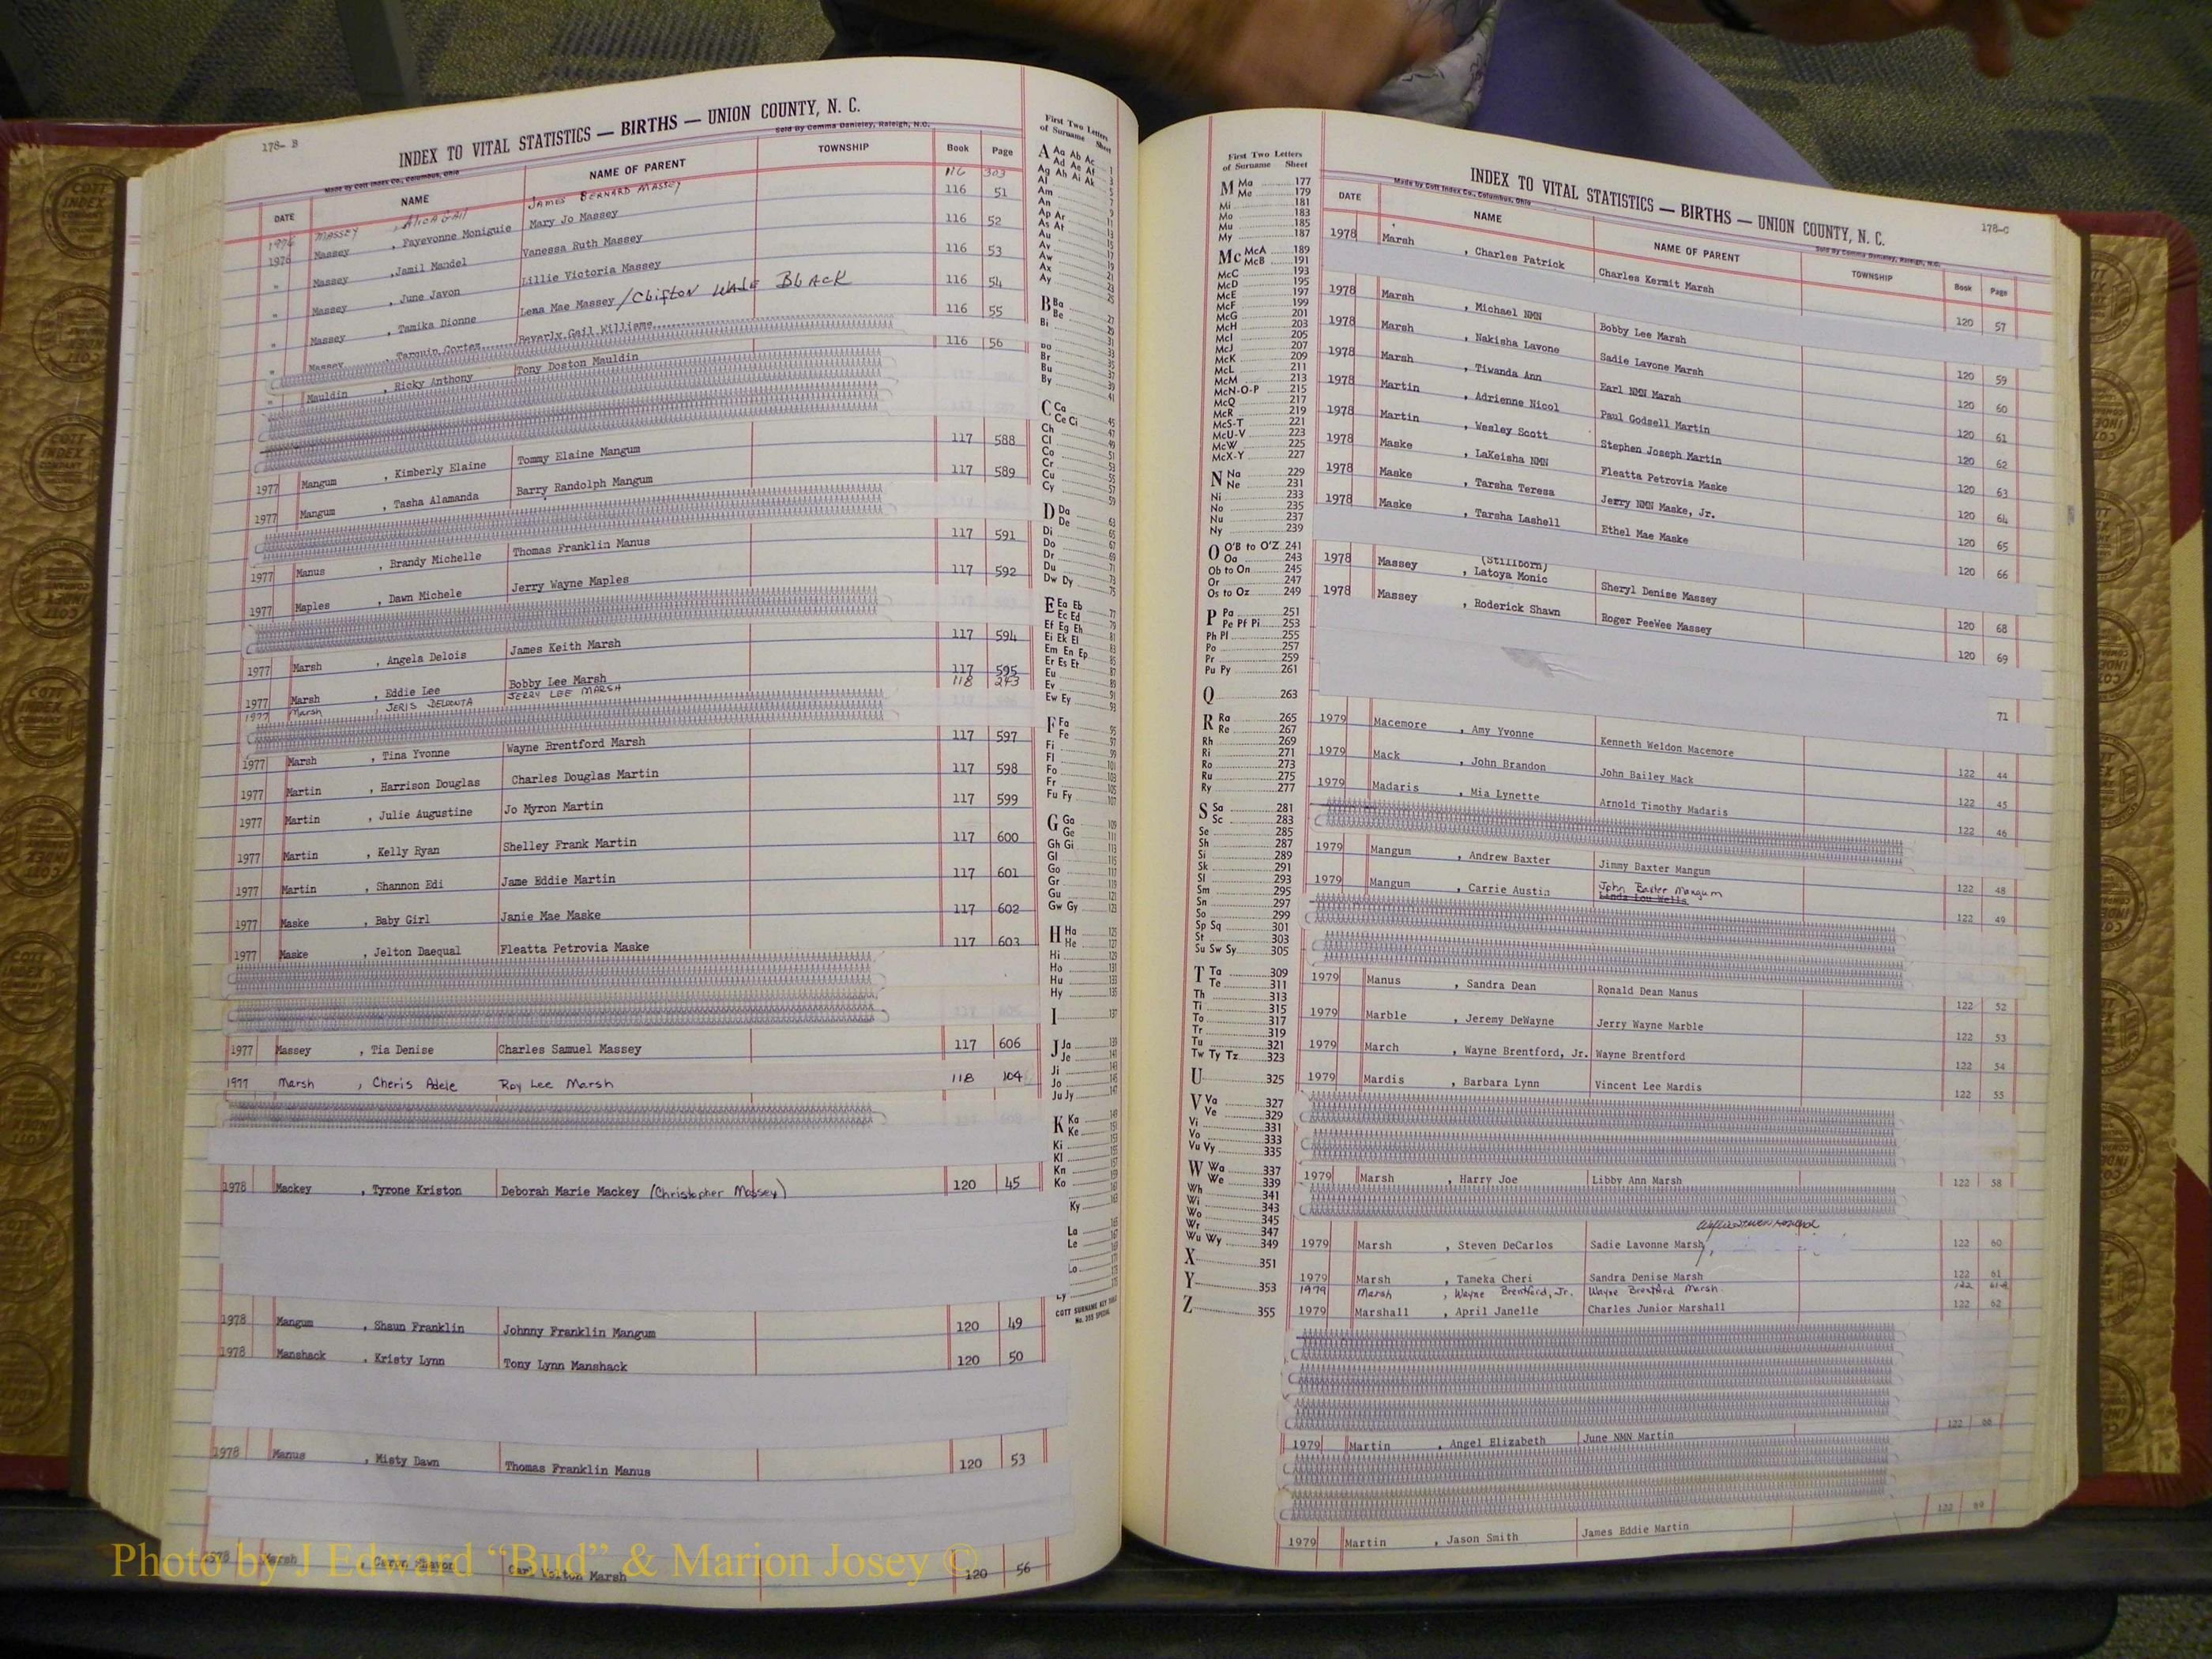 178- B
INDEX TO VITAL STATISTICS — BIRTHS — UNION COUNTY, N. C.
Made by Cott Index Co., Columbus, Ohio Sold By Comma Danieley, Raleigh, N.C.
DATE NAME NAME OF PARENT TOWNSHIP Book Page
1976 MASSEY JAMES BERNARD MASSEY 116 303
1976 Massey , Fayevonne Moniguie Mary Jo Massey 116 51
" Massey ,Jamil Mandel Vanessa Ruth Massey 116 52
" Massey , June Javon Lillie Victoria Massey 116 53
" Massey , Tamika Dionne Lena Mae Massey / Clifton Wade BLACK 116 54
" Massey , Tarquin Cortez Beverly Gail Williams 116 55
" Mauldin , Ricky Anthony Tony Doston Mauldin 116 56
1977 Mangum , Kimberly Elaine Tommy Elaine Mangum 117 588
1977 Mangum , Tasha Alamanda Barry Randolph Mangum 117 589
1977 Manus , Brandy Michelle Thomas Franklin Manus 117 591
1977 Maples , Dawn Michele Jerry Wayne Maples 117 592
1977 Marsh , Angela Delois James Keith Marsh 117 594
1977 Marsh , Eddie Lee Bobby Lee Marsh 117 595
1977 Marsh , JERIS JERRY LEE MARSH 118 243
1977 Marsh , Tina Yvonne Wayne Brentford Marsh 117 597
1977 Martin , Harrison Douglas Charles Douglas Martin 117 598
1977 Martin , Julie Augustine Jo Myron Martin 117 599
1977 Martin , Kelly Ryan Shelley Frank Martin 117 600
1977 Martin , Shannon Edi Jame Eddie Martin 117 601
1977 Maske , Baby Girl Janie Mae Maske 117 602
1977 Maske , Jelton Daequal Fleatta Petrovia Maske 117 603
1977 Massey , Tia Denise Charles Samuel Massey 117 606
1977 Marsh , Cheris Adele Roy Lee Marsh 118 104
1978 Mackey , Tyrone Kriston Deborah Marie Mackey (Christopher Massey) 120 45
1978 Mangum , Shaun Franklin Johnny Franklin Mangum 120 49
1978 Manshack , Kristy Lynn Tony Lynn Manshack 120 50
1978 Manus , Misty Dawn Thomas Franklin Manus 120 53
1978 Marsh , Caron Marsh 120 56
First Two Letters
of Surname Sheet
A Aa Ab Ac 1
Ad Ae Af 3
Ag Ah Ai Ak 5
Al 7
Am 9
An 11
Ap Ar 13
As At
Au
Av
Aw
Ax
Ay 25
B Ba 27
Be 29
Bi 31
Br
Bu
By 41
C Ca 45
Ce Ci 47
Ch
Cl
Co
Cr
Cu
Cy 59
D Da 63
De 65
Di
Do
Dr
Du
Dw Dy 75
E Ea Eb 77
Ec Ed
Ef Eg Eh
Ei Ek El
Em En Ep
Er Es Et
Eu
Ev
Ew Ey 93
F Fa 95
Fe 97
Fi 99
Fl 101
Fo 103
Fr 105
Fu Fy 107
G Ga 109
Ge 111
Gh Gi 113
Gl 115
Go 117
Gr 119
Gu 121
Gw Gy 123
H Ha 125
He 127
Hi 129
Ho 131
Hu 133
Hy 135
I 137
J Ja 139
Je
Ji
Jo
Ju Jy 147
K Ka 149
Ke 151
Ki
Kl
Kn
Ko
Ky 163
La 165
Le
Lo
Ly
COTT SURNAME KEY TABLE
178-C
INDEX TO VITAL STATISTICS — BIRTHS — UNION COUNTY, N. C.
Made by Cott Index Co., Columbus, Ohio Sold By Comma Danieley, Raleigh, N.C.
DATE NAME NAME OF PARENT TOWNSHIP Book Page
1978 Marsh , Charles Patrick Charles Kermit Marsh 120 57
1978 Marsh , Michael NMN Bobby Lee Marsh 120 59
1978 Marsh , Nakisha Lavone Sadie Lavone Marsh 120 60
1978 Marsh , Tiwanda Ann Earl NMN Marsh 120 61
1978 Martin , Adrienne Nicol Paul Godsell Martin 120 62
1978 Martin , Wesley Scott Stephen Joseph Martin 120 63
1978 Maske , LaKeisha NMN Fleatta Petrovia Maske 120 64
1978 Maske , Tarsha Teresa Jerry NMN Maske, Jr. 120 65
1978 Maske , Tarsha Lashell Ethel Mae Maske 120 66
(Stillborn)
1978 Massey , Latoya Monic Sheryl Denise Massey 120 68
1978 Massey , Roderick Shawn Roger PeeWee Massey 120 69
71
1979 Macemore , Amy Yvonne Kenneth Weldon Macemore 122 44
1979 Mack , John Brandon John Bailey Mack 122 45
1979 Madaris , Mia Lynette Arnold Timothy Madaris 122 46
1979 Mangum , Andrew Baxter Jimmy Baxter Mangum 122 48
1979 Mangum , Carrie Austin John Baxter Mangum 122 49
Linda Lou Wells
1979 Manus , Sandra Dean Ronald Dean Manus 122 52
1979 Marble , Jeremy DeWayne Jerry Wayne Marble 122 53
1979 March , Wayne Brentford, Jr. Wayne Brentford 122 54
1979 Mardis , Barbara Lynn Vincent Lee Mardis 122 55
1979 Marsh , Harry Joe Libby Ann Marsh 122 58
1979 Marsh , Steven DeCarlos Sadie Lavonne Marsh, 122 60
1979 Marsh , Tameka Cheri Sandra Denise Marsh 122 61
1979 Marsh , Wayne Brentford, Jr. Wayne Brentford Marsh 122
1979 Marshall , April Janelle Charles Junior Marshall 122 62
1979 Martin , Angel Elizabeth June NMN Martin 122 66
1979 Martin , Jason Smith James Eddie Martin 122
First Two Letters
of Surname Sheet
M Ma 177
Me 179
Mi 181
Mo 183
Mu 185
My 187
Mc McA 189
McB 191
McC 193
McD 195
McE 197
McF 199
McG 201
McH 203
McI 205
McJ 207
McK 209
McL 211
McM 213
McN-O-P 215
McQ 217
McR 219
McS-T 221
McU-V 223
McW 225
McX-Y 227
N Na 229
Ne 231
Ni 233
No 235
Nu 237
Ny 239
O O'B to O'Z 241
Oa 243
Ob to On 245
Or 247
Os to Oz 249
P Pa 251
Pe Pf Pi 253
Ph Pl 255
Po 257
Pr 259
Pu Py 261
Q 263
R Ra 265
Re 267
Rh 269
Ri 271
Ro 273
Ru 275
Ry 277
S Sa 281
Sc 283
Se 285
Sh 287
Si 289
Sk 291
Sl 293
Sm 295
Sn 297
So 299
Sp Sq 301
St 303
Su Sw Sy 305
T Ta 309
Te 311
Th 313
Ti 315
To 317
Tr 319
Tu 321
Tw Ty Tz 323
U 325
V Va 327
Ve 329
Vi 331
Vo 333
Vu Vy 335
W Wa 337
We 339
Wh 341
Wi 343
Wo 345
Wr 347
Wu Wy 349
X 351
Y 353
Z 355
Photo by J Edward “Bud” & Marion Josey ©